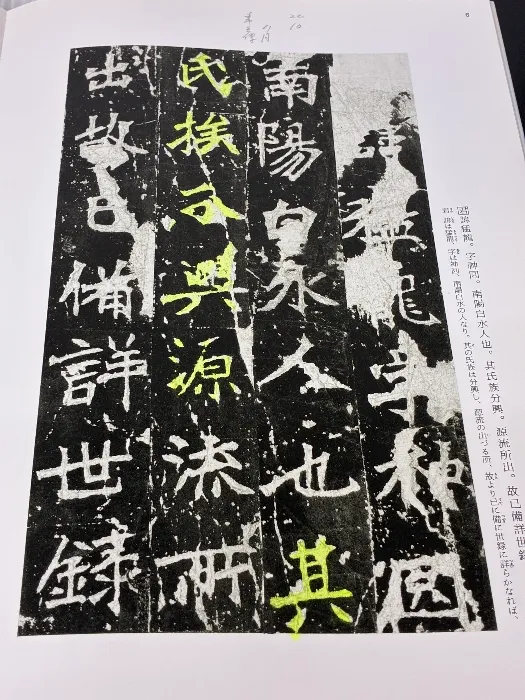 6
諱猛龍。字神冏。南陽白水人也。其氏族分興。源流所出。故已備詳世録
諱は猛龍、字は神冏、南陽白水の人なり。其の氏族は分興し、源流の出づる所、故より已に備に世録に詳らかなれば、
諱猛龍字神冏
南陽白水人也其
氏族分興源流所
出故已備詳世録